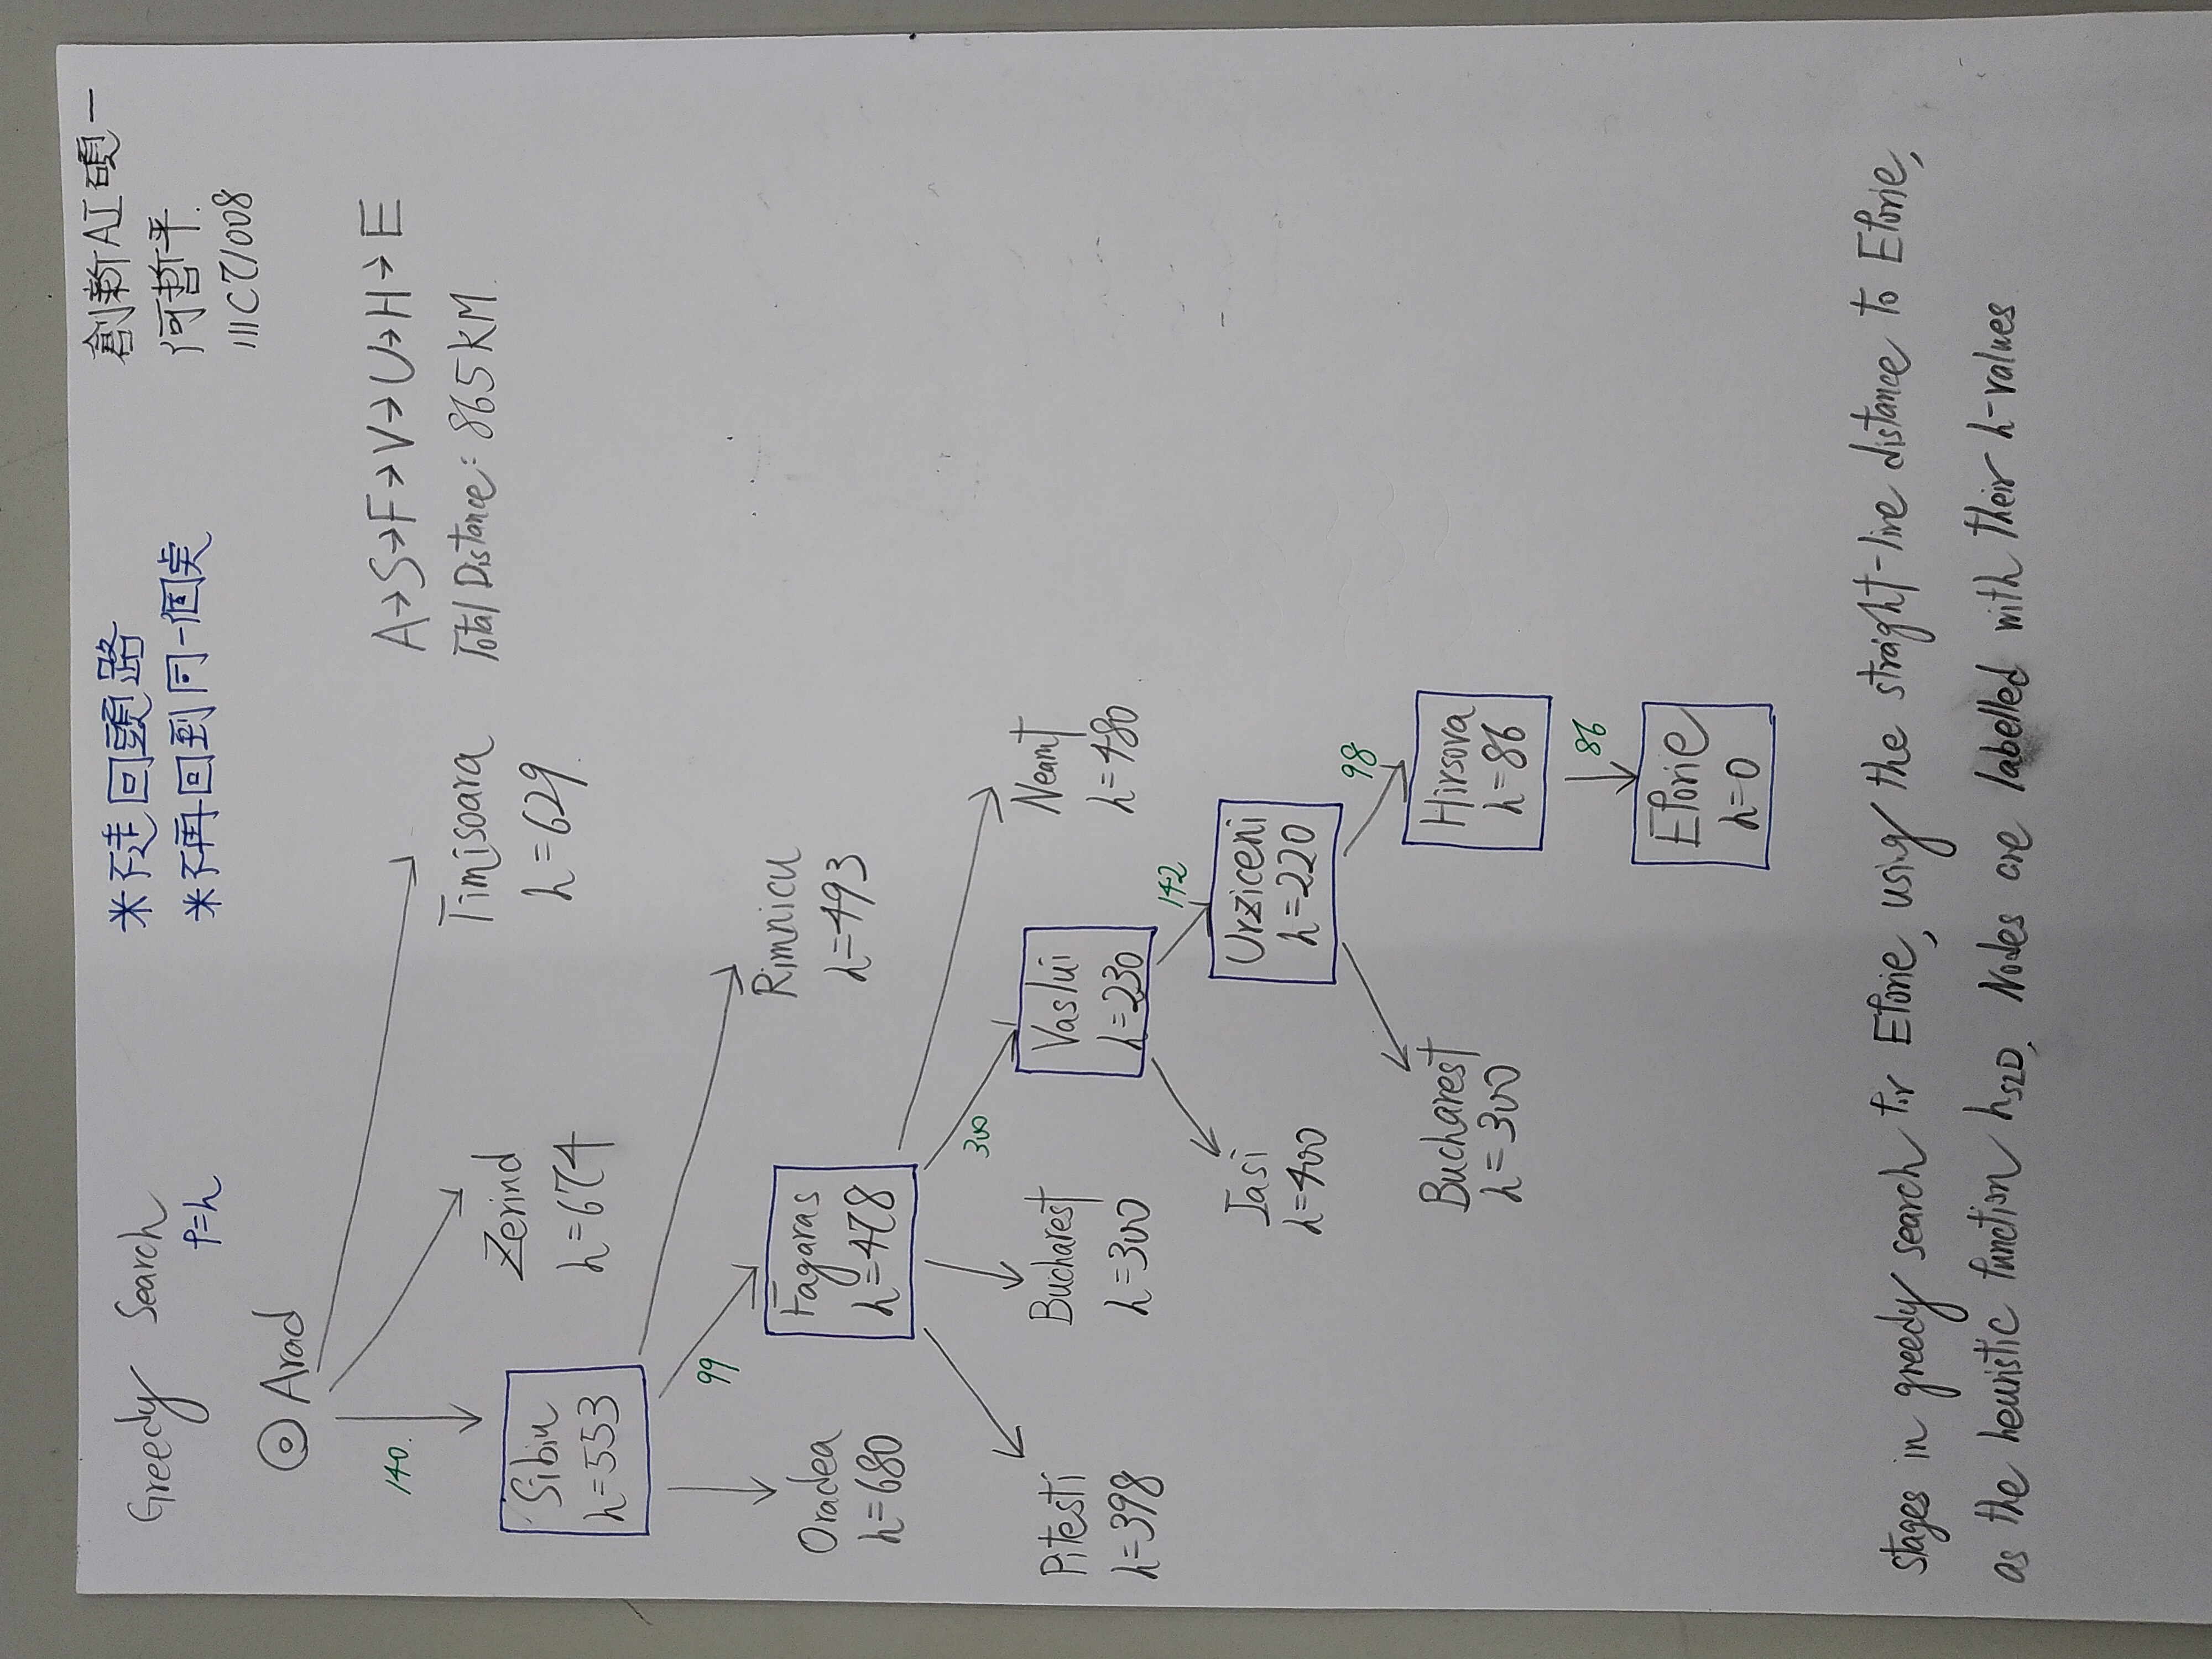 Greedy Search
f=h
*不走回頭路
*不再回到同一個点
創新AI碩一
何哲平.
111C71008
Arad
140.
A→S→F→V→U→H→E
Total Distance: 865KM.
Timisoara
h=629.
Zerind
h=674
Sibiu
h=553
99
Rimnicu
h=493
Fagaras
h=478
Oradea
h=680
300
Pitesti
h=398
Bucharest
h=300
Vaslui
h=230
Neamt
h=480
142
Iasi
h=400
Urziceni
h=220
98
Bucharest
h=300
Hirsova
h=86
86
Eforie
h=0
stages in greedy search for Eforie, using the straight-line distance to Eforie,
as the heuristic function hSLD. Nodes are labelled with their h-values